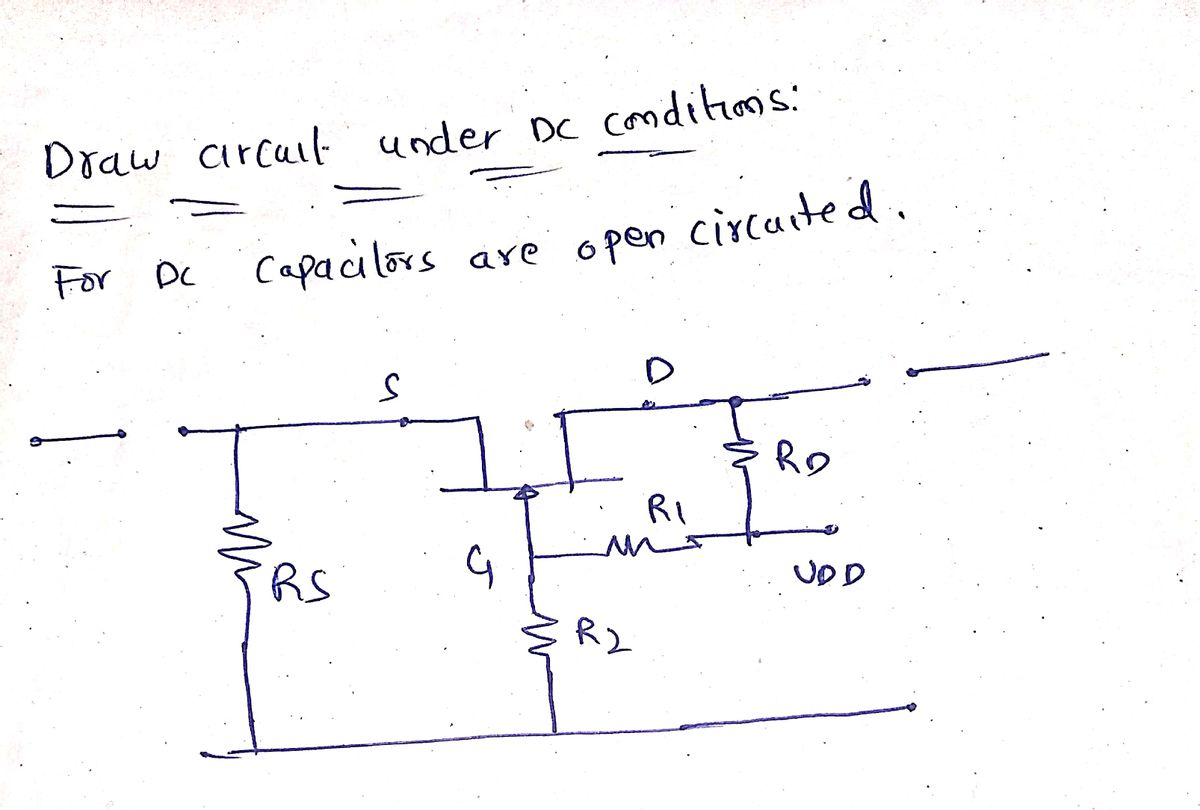 Draw circuit under DC conditions:
For DC Capacitors are open circuited.
S
D
RD
R1
G
RS
VDD
R2